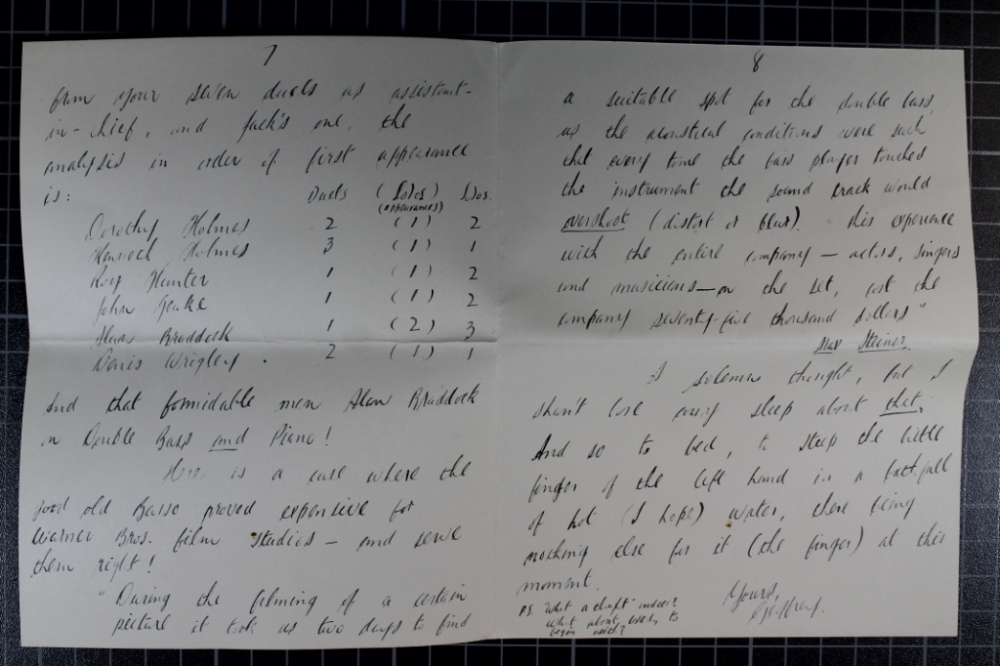 7
from your seven duets as assistant-
in-chief, and Jack's one, the
analysis in order of first appearance
is:
Duets (Solos) Solos.
(appearances)
Dorothy Holmes 2 (1) 2
Holmes 3 (1) 1
Roy Hunter 1 (1) 2
John 1 (1) 2
Alan Braddock 1 (2) 3
Denis Wrigley. 2 (1) 1
And that formidable man Alan Braddock
on Double Bass and Piano!
Here is a case where the
good old Basso proved expensive for
Warner Bros. film studios — and serve
them right!
"During the filming of a certain
picture it took us two days to find
8
a suitable spot for the double bass,
as the acoustical conditions were such
that every time the bass player touched
the instrument the sound track would
overshoot (distort or blur). This experience
with the entire company — actors, singers
and musicians — on the set, cost the
company seventy-five thousand dollars"
Max Steiner.
A solemn thought, but I
shan't lose any sleep about that.
And so to bed, to steep the little
finger of the left hand in a bath full
of hot (I hope) water, there being
nothing else for it (the finger) at this
moment.
Yours,
Geoffrey.
P.S. What a draft indeed!
What about to
begin with?